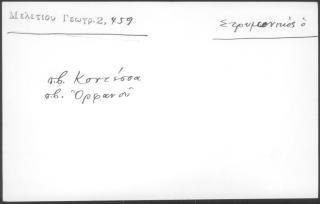 Μελετίου Γεωγρ. 2, 459
Στρυμονικὸς ὁ
π.β. Κοντέσσα
π.β. Ὀρφανοῦ